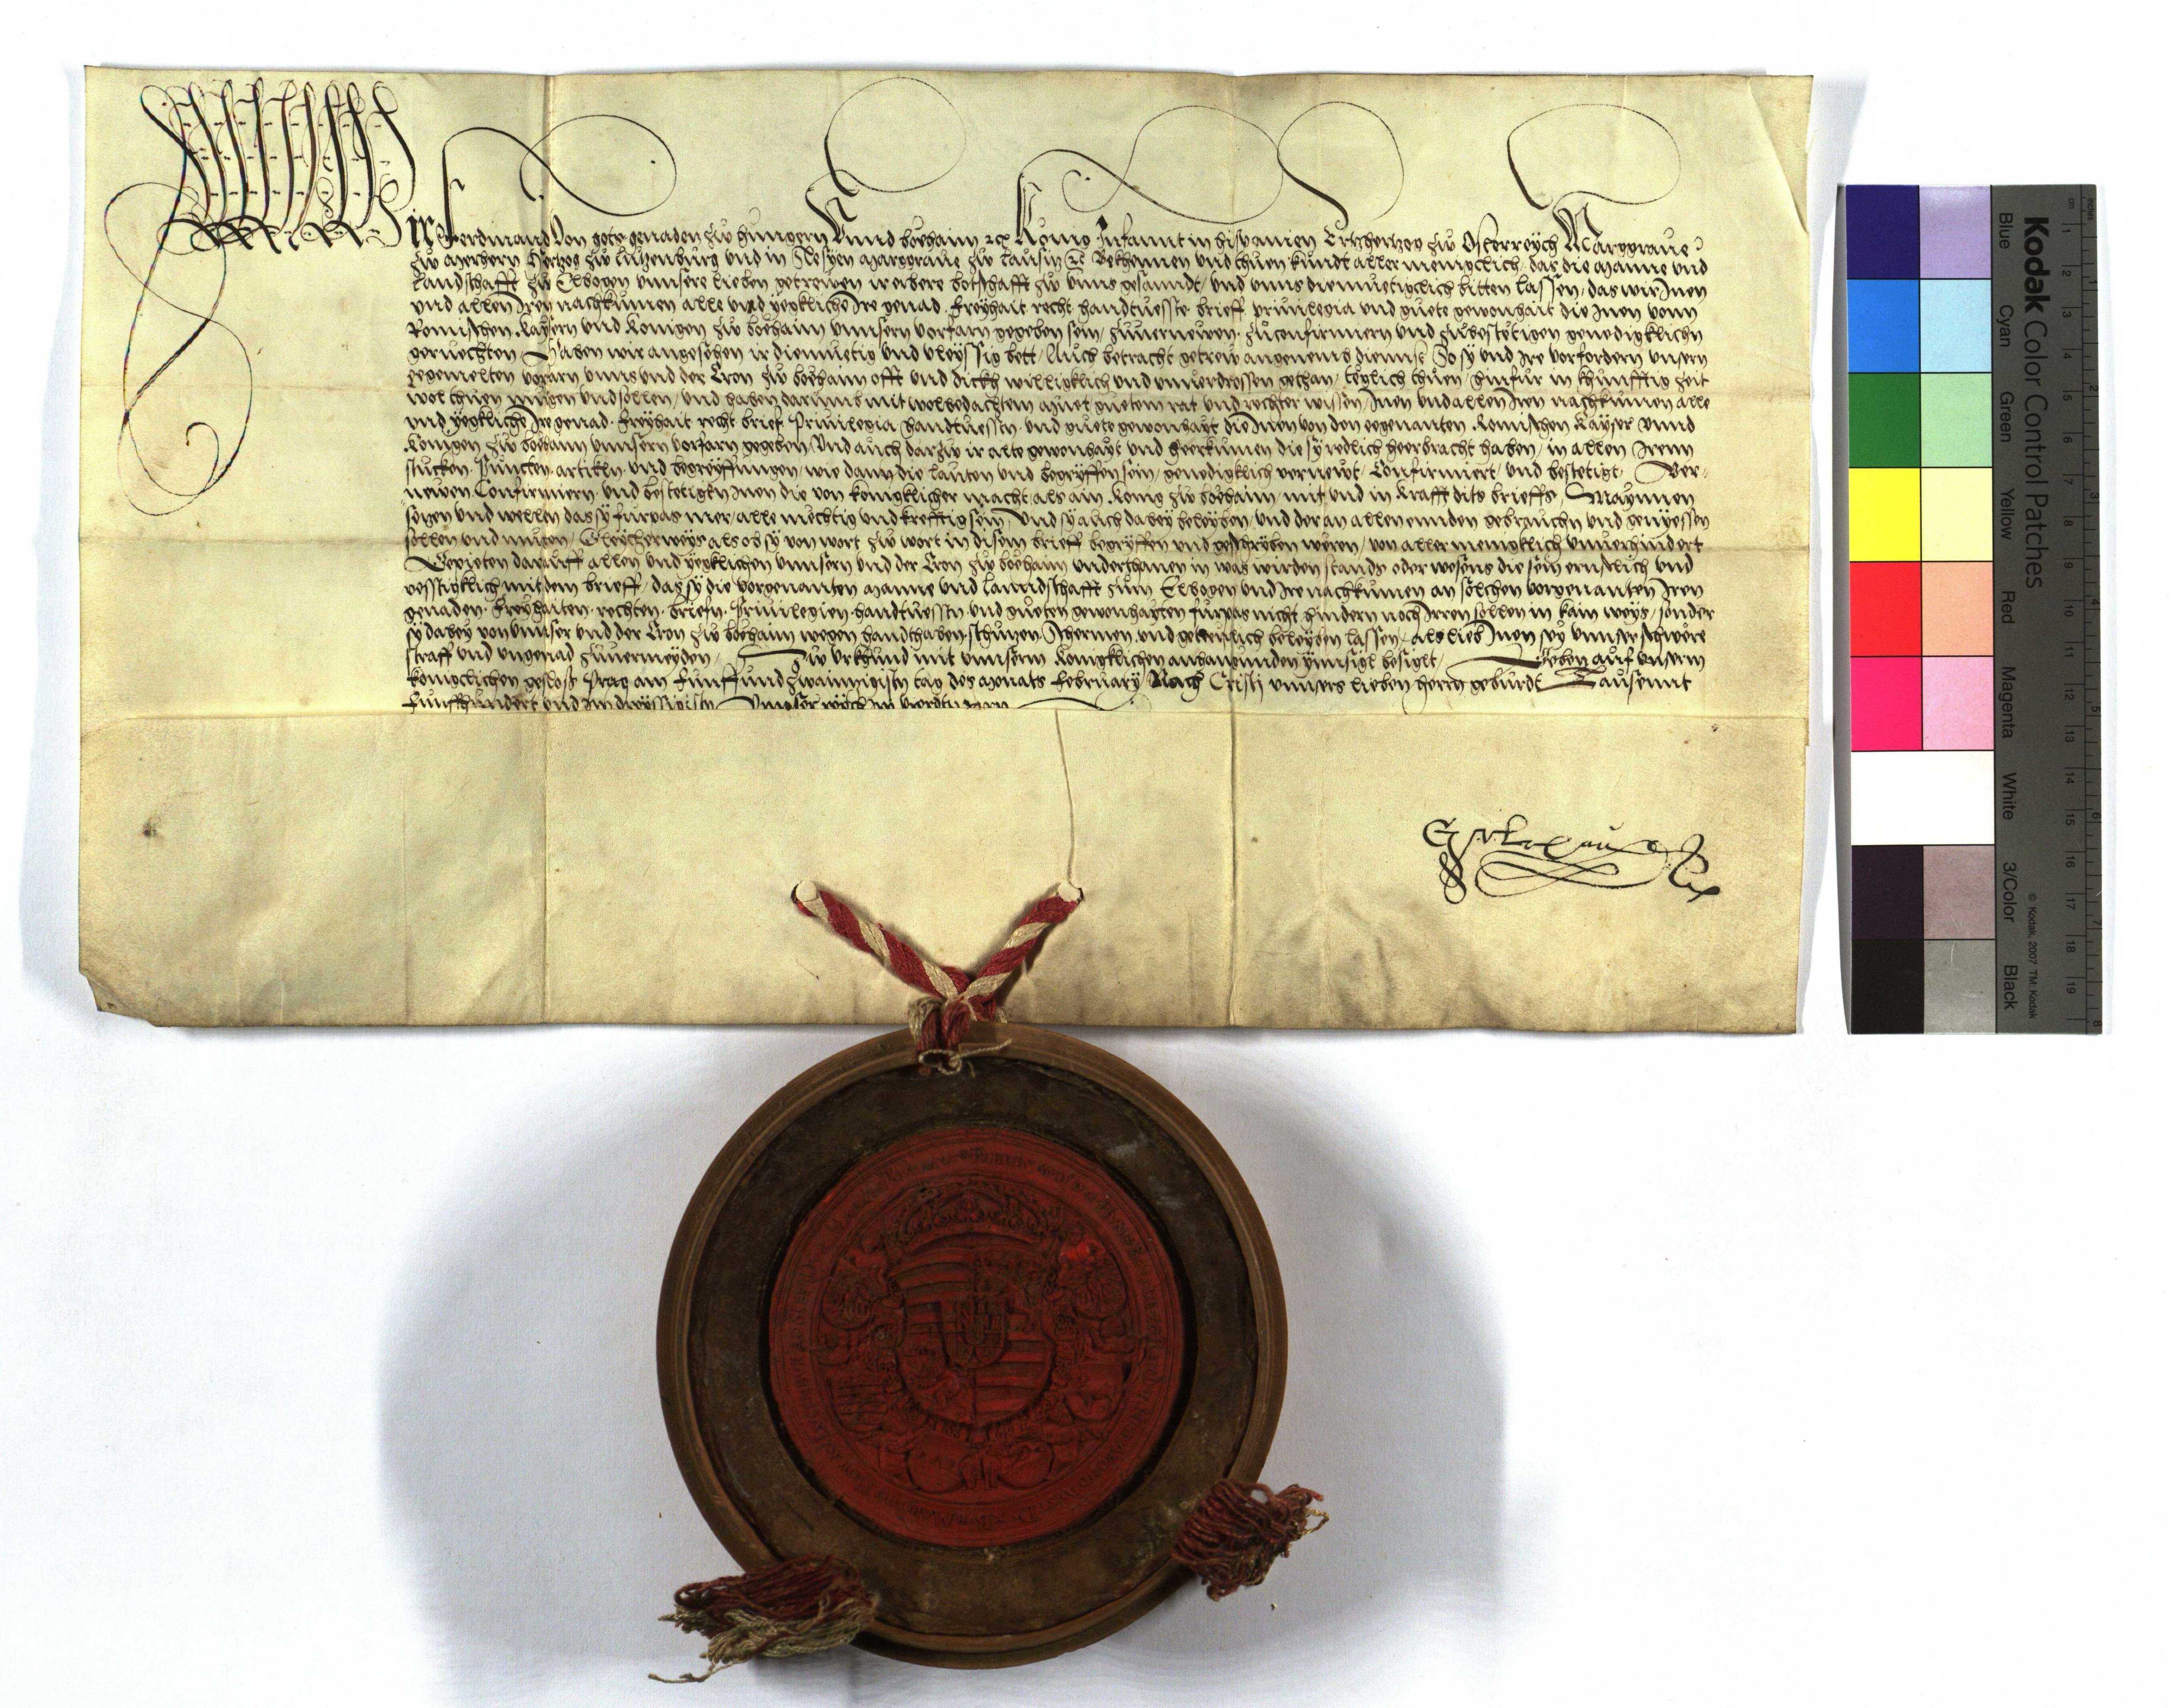 Wir Ferdinand Von gots genaden zw Hungern Unnd Boëhaim ꝛc Kunig Infannt in Hispanien Ertzhertzog zw Osterreÿch Marggraue
zw Merhern Hertzog zw Lutzenburg und in Slesyen Marggraue zw Lausitz ꝛc Bekhennen und thuen kundt allermenigclich, das die Manne und
Lanndschafft zw Elbogen unnsere lieben getrewen ir erbere botschafft zw unns gesanndt, und unns diemuetigclich bitten lassen, das wir Inen
und allen Iren nachkumen alle unnd yegkliche Ire genad. Freyhait recht handtuesste. brieff privilegia und guete gewonhait die Inen vonn
Romischen Kaysern und Konigen zw boëhaim unnsern vorfarn gegeben sein, zuvernewen. zuconfirmiern und zubestetigen genedigklichn
geruechten, Haben wir angesehen ir diemuetig und vleyssig bett, Auch betracht getrew angenemb diennst So sy und Ire vorfordern unsern
gegemelten vorfarn unns und der Cron zw boëhaim offt und dickh willigklich und unverdrossen gethan, teglich thuen, hinfur in khunfftig zeit
wol thuen mugen und sollen, und haben darumb mit wolbedachtem Muet guetem rat und rechter wissen, Inen und allen Iren nachkumen alle
und yegkliche Ire genad. Freyhait recht brief. Privilegia handtuessten. und guete gewonhayt die Inen von den egenanten. Romischen Kayser unnd
Konigen zw boëhaim unnsern vorfarn gegeben, Und auch darzw ir alte gewonhayt und heerkumen die sy redlich heerbracht haben, in allen Irenn
stucken. Puncten. artikln. und begreyffungen, wie dann die lauten und begryffen sein, genedigklich vernewt, Confirmiert, und bestetigt, Ver-
newen Confirmiern. und bestetigen Inen die von konigklicher macht, als ain Konig zw boëhaim, mit und in krafft dits brieffs, Maynnen
setzen und wellen das sy furpas mer, alle mechtig und krefftig sein, Und sy auch dabey beleyben, und der an allen ennden gebrauchn und genyessen
sollen und mugen, Gleycherweys als ob sy von wort zw wort in disem brieff begryffen und geschryben weren, von allermenigklich unverhindert
Gepieten darauff allen und yegklichen unnsern und der Cron zw boëhaim underthanen in was wirden stands oder wesens die sein ernstlich und
vesstigklich mit dem brieff, das sy die vorgenanten Manne und lanndschafft zum Elbogen und Ire nachkumen an solchen vorgenanten Iren
genaden. Freyhaiten. rechten. briefn. Privilegien. handtuesstn. und gueten gewonhayten furpas nicht hindern noch Irren sollen in kain weys, sonder
sy dabey von unnser und der Cron zw boëhaim wegen handthaben schutzen schermen. und geruelich beleyben lassen, als lieb Inen sey unnser schwere
straff und ungenad zuvermeyden, Zw Urkhund mit unnserm Konigklichen anhangunden Innsigl besiglt, Geben auf unserm
konigclichen gesloss Prag am Funffundzwaintzigistn tag des Monats February Nach Cristj unnsers lieben herrn geburde Tausennt
Funffhundert und Im dreyssigistn Unnser reich Im vierdtn Jarn
Kodak Color Control Patches
Blue Cyan Green Yellow Red Magenta White 3/Color Black
© Kodak, 2007 TM: Kodak
cm 1 2 3 4 5 6 7 8 9 10 11 12 13 14 15 16 17 18 19
inches 1 2 3 4 5 6 7 8